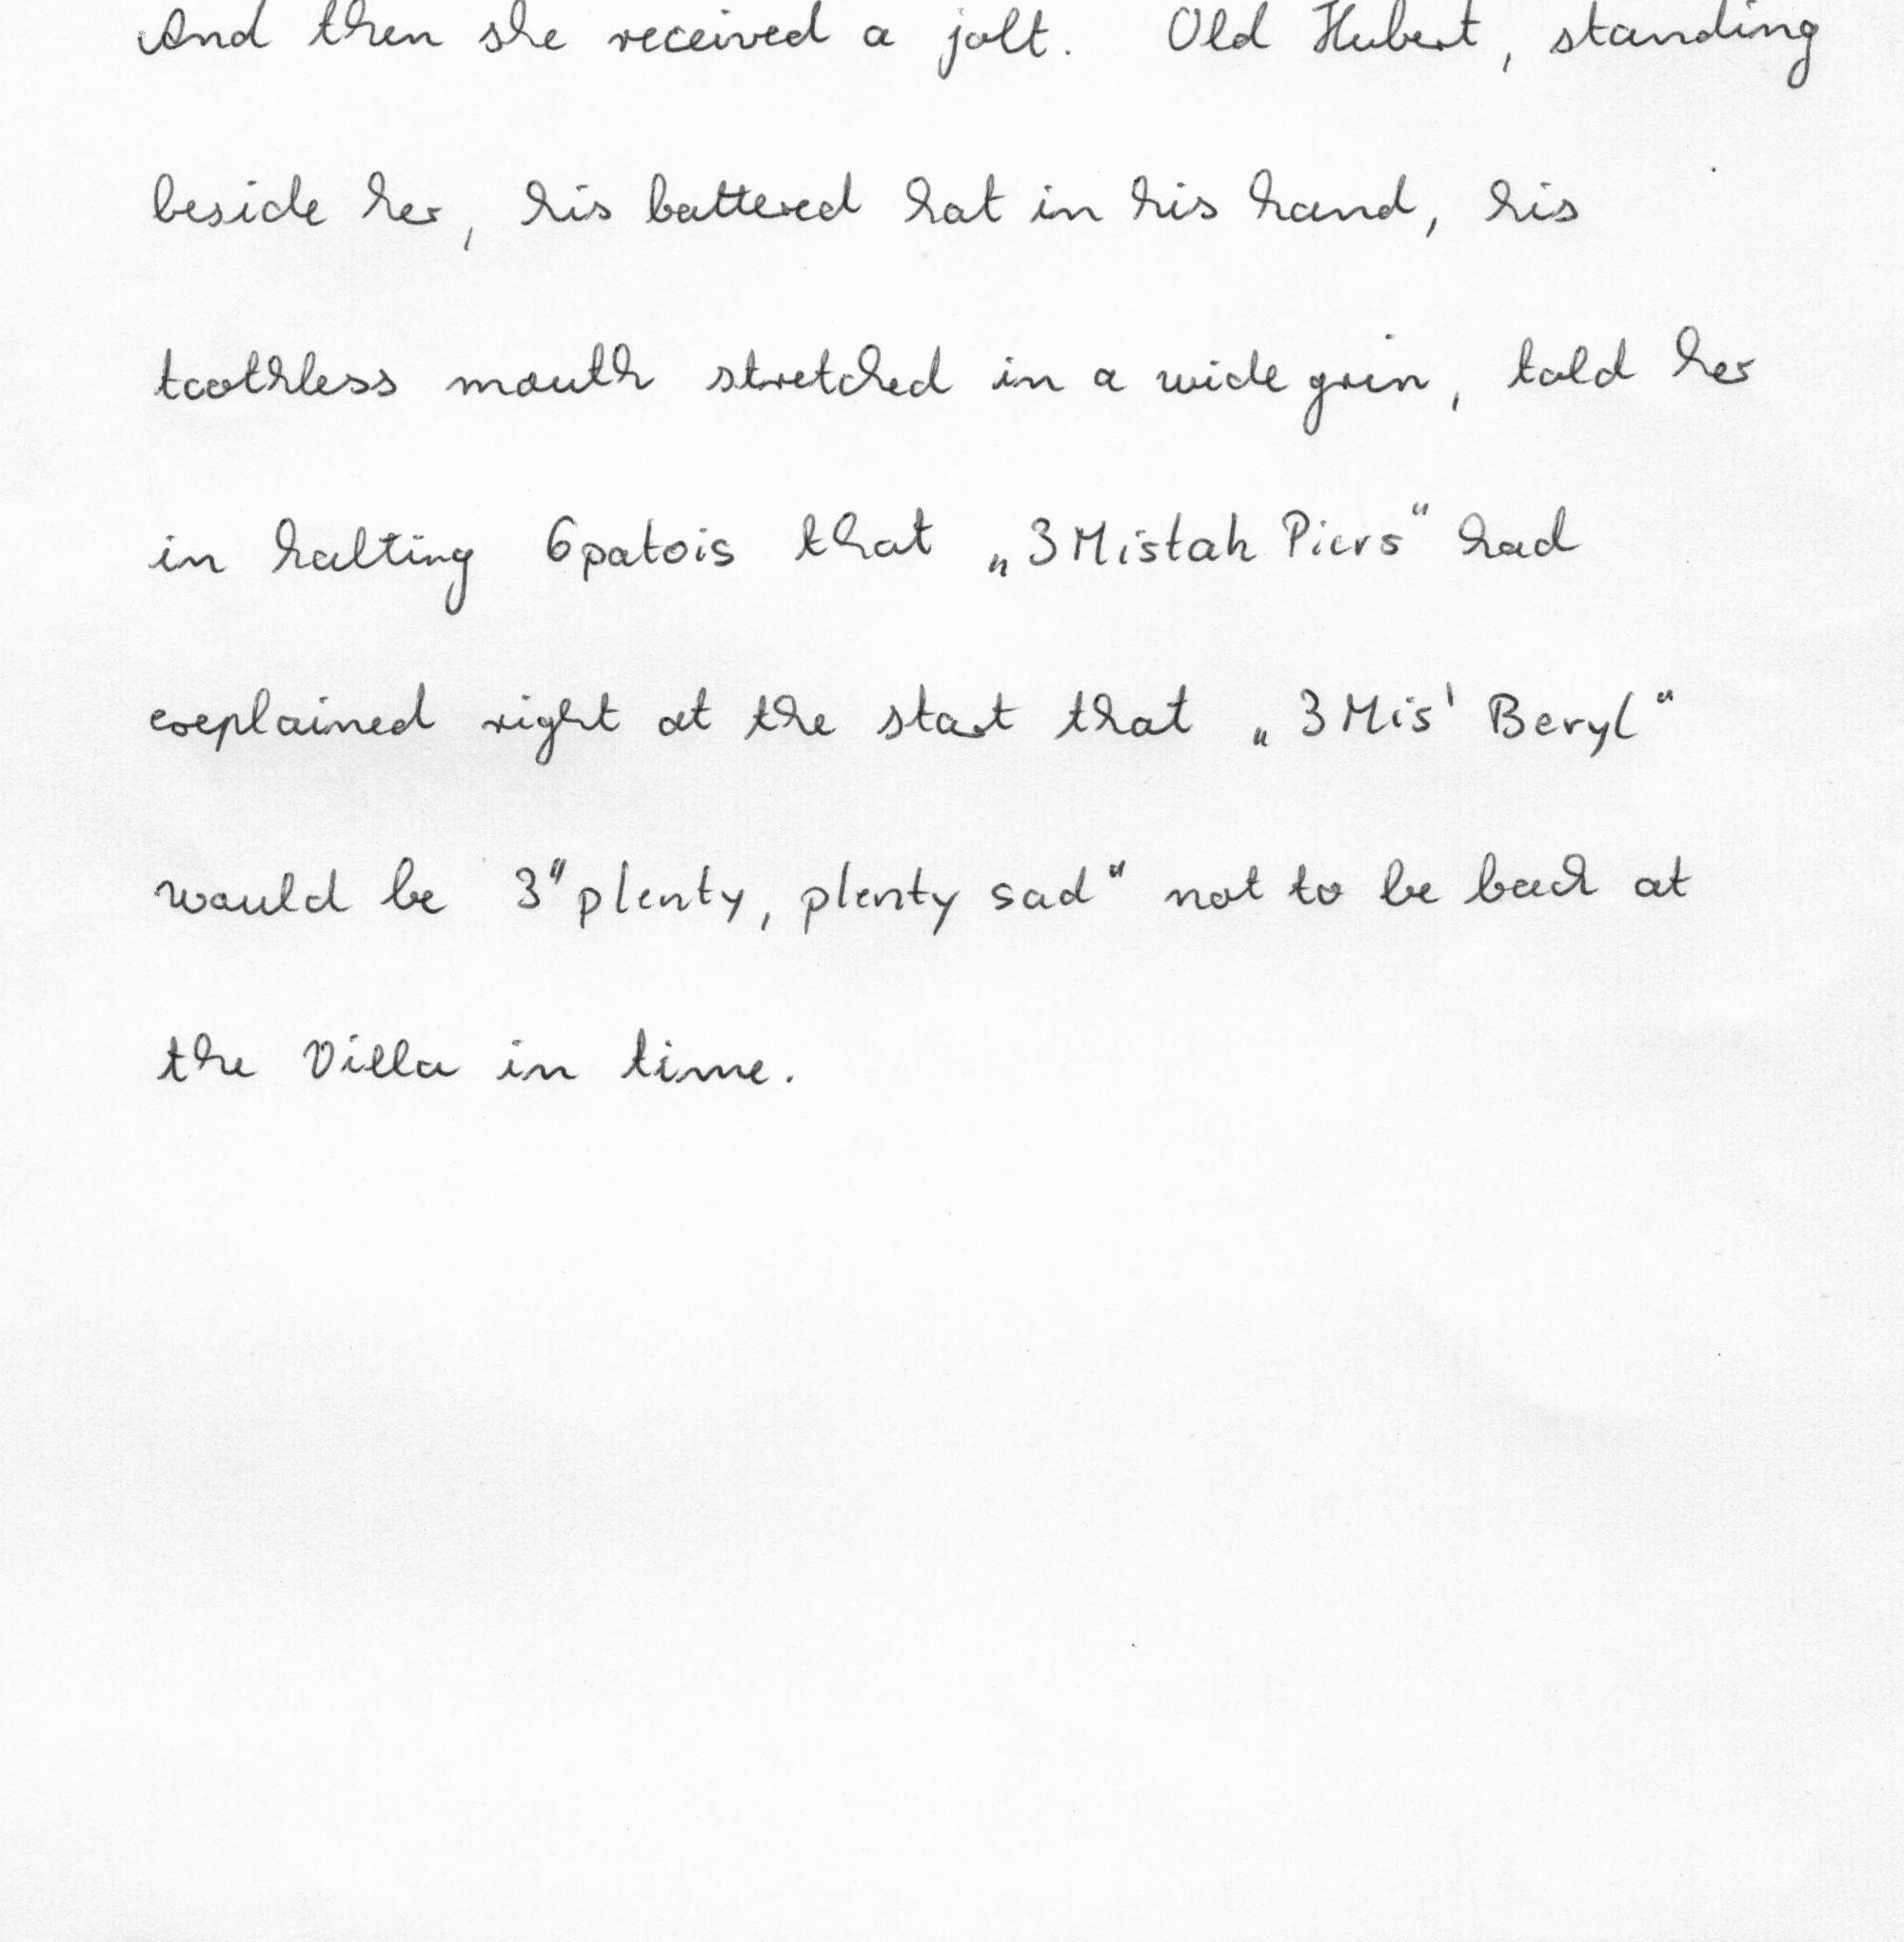 And then she received a jolt. Old Hubert, standing
beside her, his battered hat in his hand, his
toothless mouth stretched in a wide grin, told her
in halting 6patois that „3Mistah Piers“ had
explained right at the start that „3Mis' Beryl“
would be 3"plenty, plenty sad" not to be back at
the Villa in time.